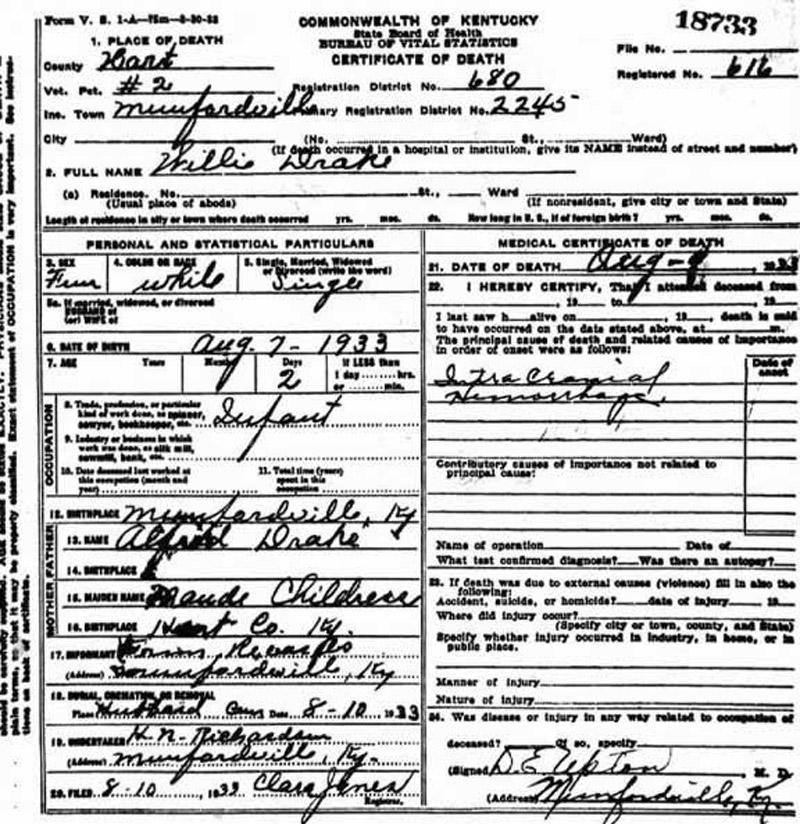 Form V. S. 1-A
COMMONWEALTH OF KENTUCKY
State Board of Health
BUREAU OF VITAL STATISTICS
CERTIFICATE OF DEATH
18733
File No.
Registered No. 616
1. PLACE OF DEATH
County Hart
Vot. Pct. #2
Registration District No. 680
Inc. Town Munfordville
Primary Registration District No. 2245
City (No. St., Ward)
(If death occurred in a hospital or institution, give its NAME instead of street and number)
2. FULL NAME Willie Drake
(a) Residence. No. St., Ward
(Usual place of abode) (If nonresident, give city or town and State)
Length of residence in city or town where death occurred yrs. mos. ds. How long in U. S., if of foreign birth? yrs. mos. ds.
PERSONAL AND STATISTICAL PARTICULARS
3. SEX Fem
4. COLOR OR RACE white
5. Single, Married, Widowed
or Divorced (write the word)
Single
5a. If married, widowed, or divorced
HUSBAND of
(or) WIFE of
6. DATE OF BIRTH Aug. 7 - 1933
7. AGE Years Months Days If LESS than
2 1 day hrs.
or min.
OCCUPATION
8. Trade, profession, or particular
kind of work done, as spinner,
sawyer, bookkeeper, etc. Infant
9. Industry or business in which
work was done, as silk mill,
sawmill, bank, etc.
10. Date deceased last worked at
this occupation (month and
year)
11. Total time (years)
spent in this
occupation
12. BIRTHPLACE Munfordville, Ky
FATHER
13. NAME Alfred Drake
14. BIRTHPLACE
MOTHER
15. MAIDEN NAME Maude Childress
16. BIRTHPLACE Hart Co. Ky.
17. INFORMANT
(Address) Munfordville, Ky
18. BURIAL, CREMATION, OR REMOVAL
Place Cem Date 8-10 1933
19. UNDERTAKER H. N. Richardson
(Address) Munfordville, Ky.
20. FILED 8-10, 1933 Clara Jones
Registrar.
MEDICAL CERTIFICATE OF DEATH
21. DATE OF DEATH Aug - 9, 1933
22. I HEREBY CERTIFY, That I attended deceased from
, 19 to , 19
I last saw h alive on , 19 , death is said
to have occurred on the date stated above, at m.
The principal cause of death and related causes of importance
in order of onset were as follows:
Date of
onset
Intra Cranial
Hemorrhage.
Contributory causes of importance not related to
principal cause:
Name of operation Date of
What test confirmed diagnosis? Was there an autopsy?
23. If death was due to external causes (violence) fill in also the
following:
Accident, suicide, or homicide? date of injury 19
Where did injury occur?
(Specify city or town, county, and State)
Specify whether injury occurred in industry, in home, or in
public place.
Manner of injury
Nature of injury
24. Was disease or injury in any way related to occupation of
deceased? If so, specify
(Signed) D. E. Upton M. D.
(Address) Munfordville, Ky.